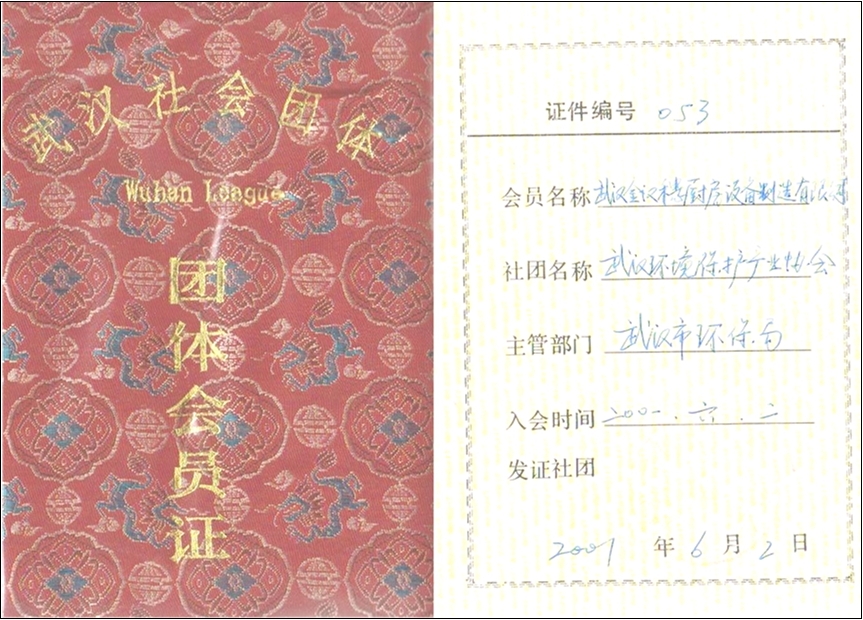 武汉社会团体
Wuhan League
团体会员证
证件编号 053
会员名称 武汉金汉禾高厨房设备制造有限
社团名称 武汉环境保护产业协会
主管部门 武汉市环保局
入会时间 二〇〇一.六.二
发证社团
2001年6月2日